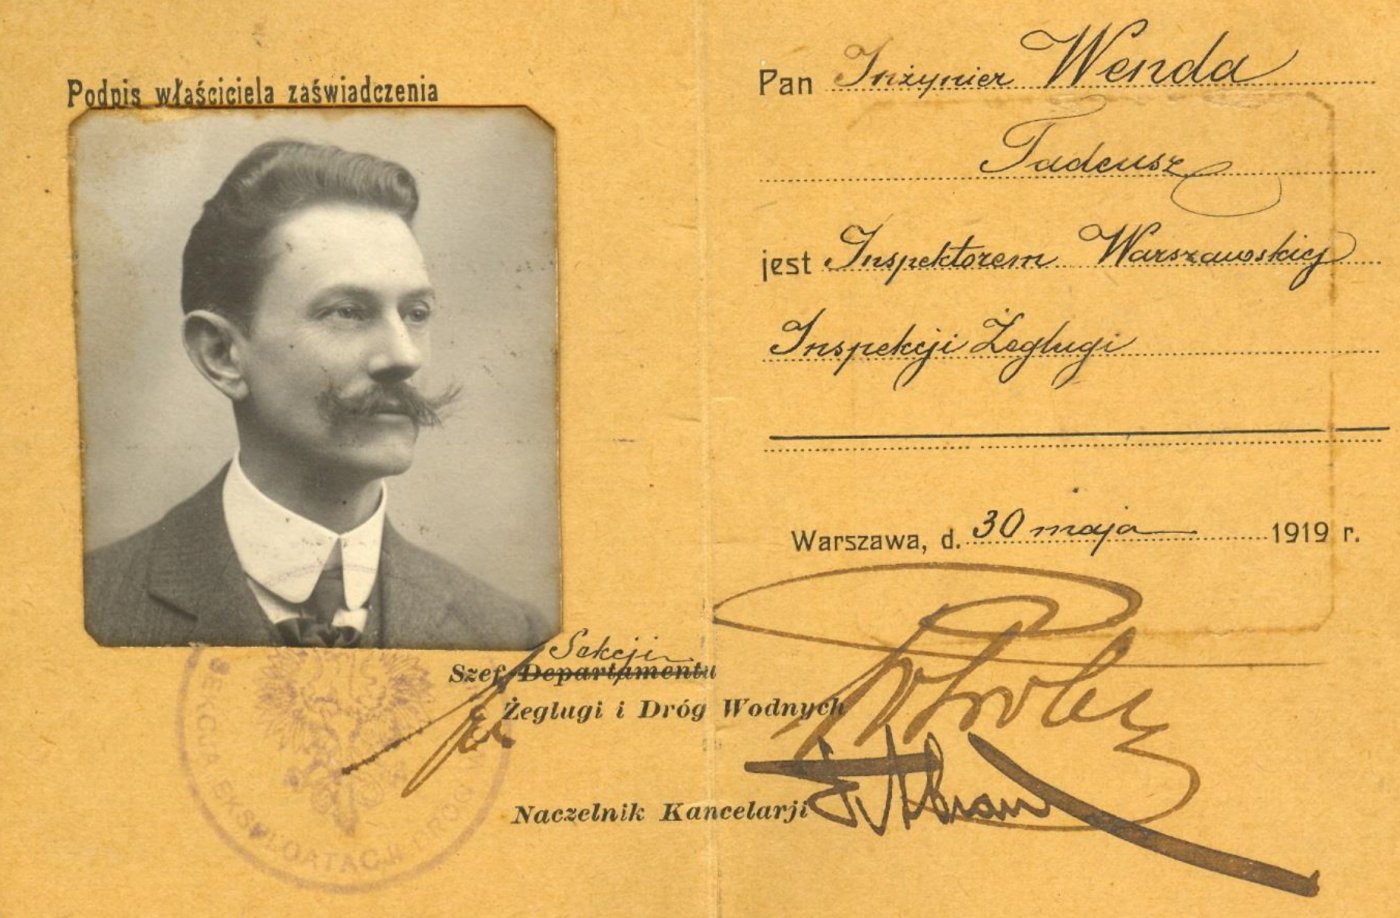 Podpis właściciela zaświadczenia
Pan Inżynier Wenda
Tadeusz
jest Inspektorem Warszawskiej
Inspekcji Żeglugi
Warszawa, d. 30 maja 1919 r.
Sekcji
Szef Departamentu
Żeglugi i Dróg Wodnych
Naczelnik Kancelarji
SEKCJA EKSPLOATACJI DRÓG